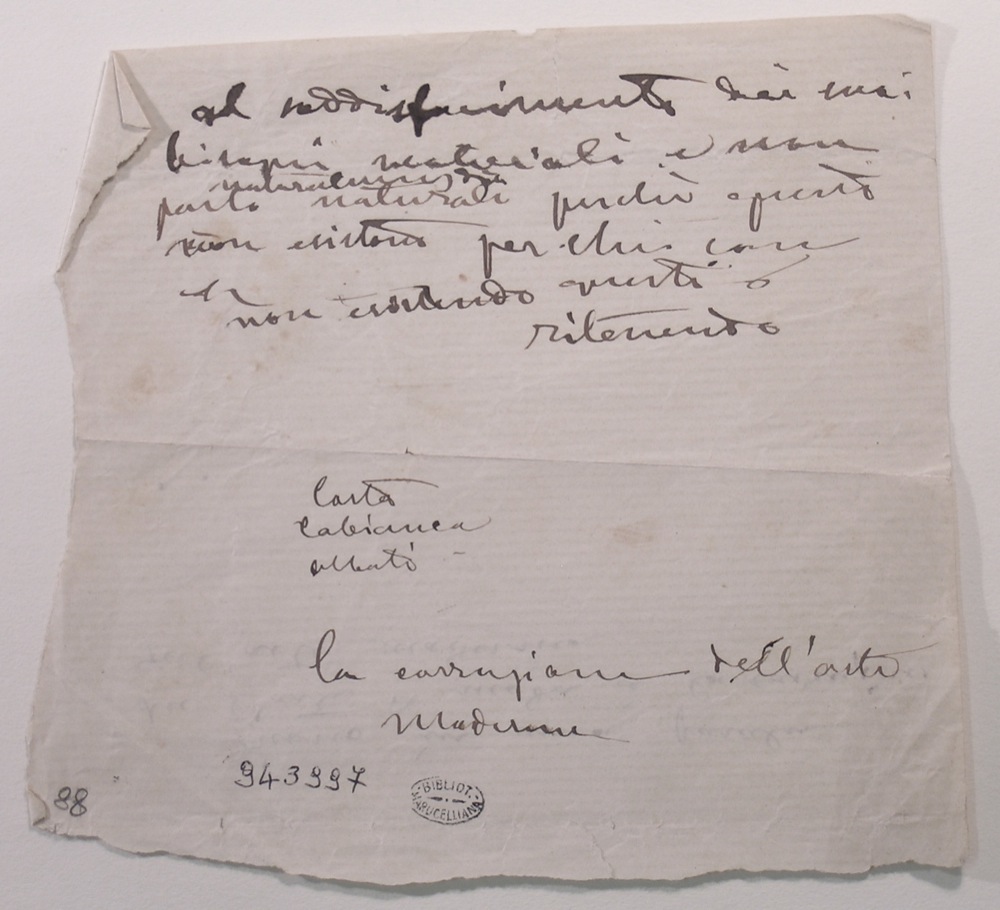 al soddisfacimento dei miei
bisogni materiali e non
naturalmente
parlo naturali perché questi
non esistono per chi con
non esistendo questi o
ritenendo
Costa
Cabianca
la corruzione dell'arte
Moderna
943997
88
BIBLIOT.
MARUCELLIANA